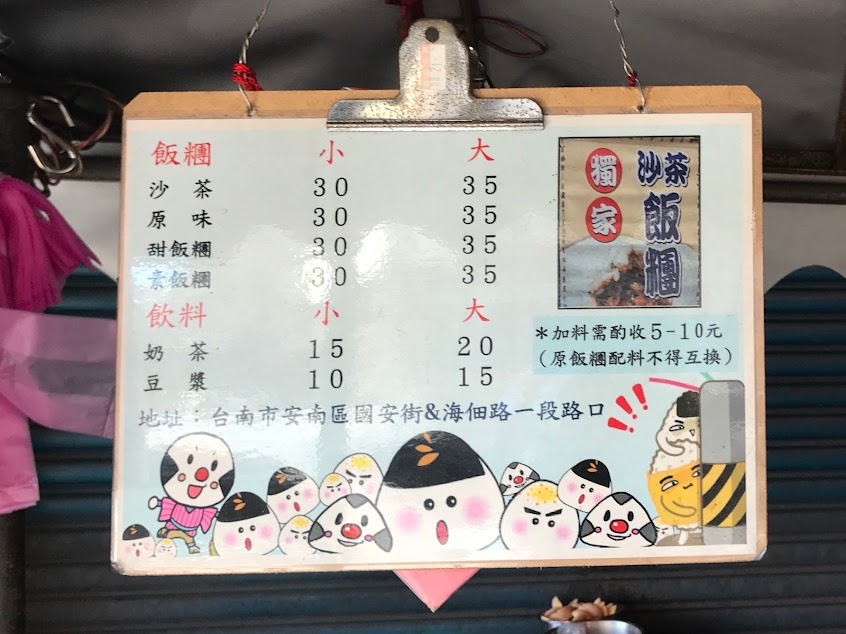 飯糰 小 大
沙茶 30 35
原味 30 35
甜飯糰 30 35
素飯糰 30 35
飲料 小 大
奶茶 15 20
豆漿 10 15
地址：台南市安南區國安街&海佃路一段路口
獨家
沙茶
飯糰
*加料需酌收5-10元
(原飯糰配料不得互換)
!!!